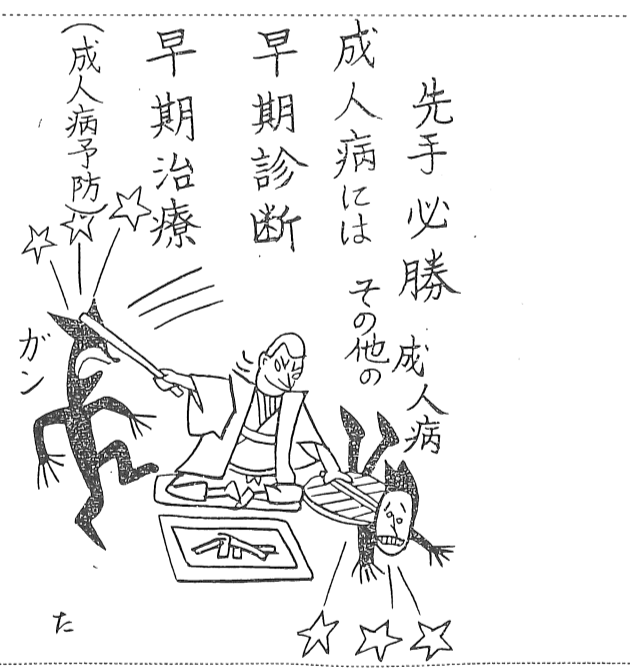 先手必勝
成人病には
早期診断
早期治療
(成人病予防)
その他の
成人病
ガン
た